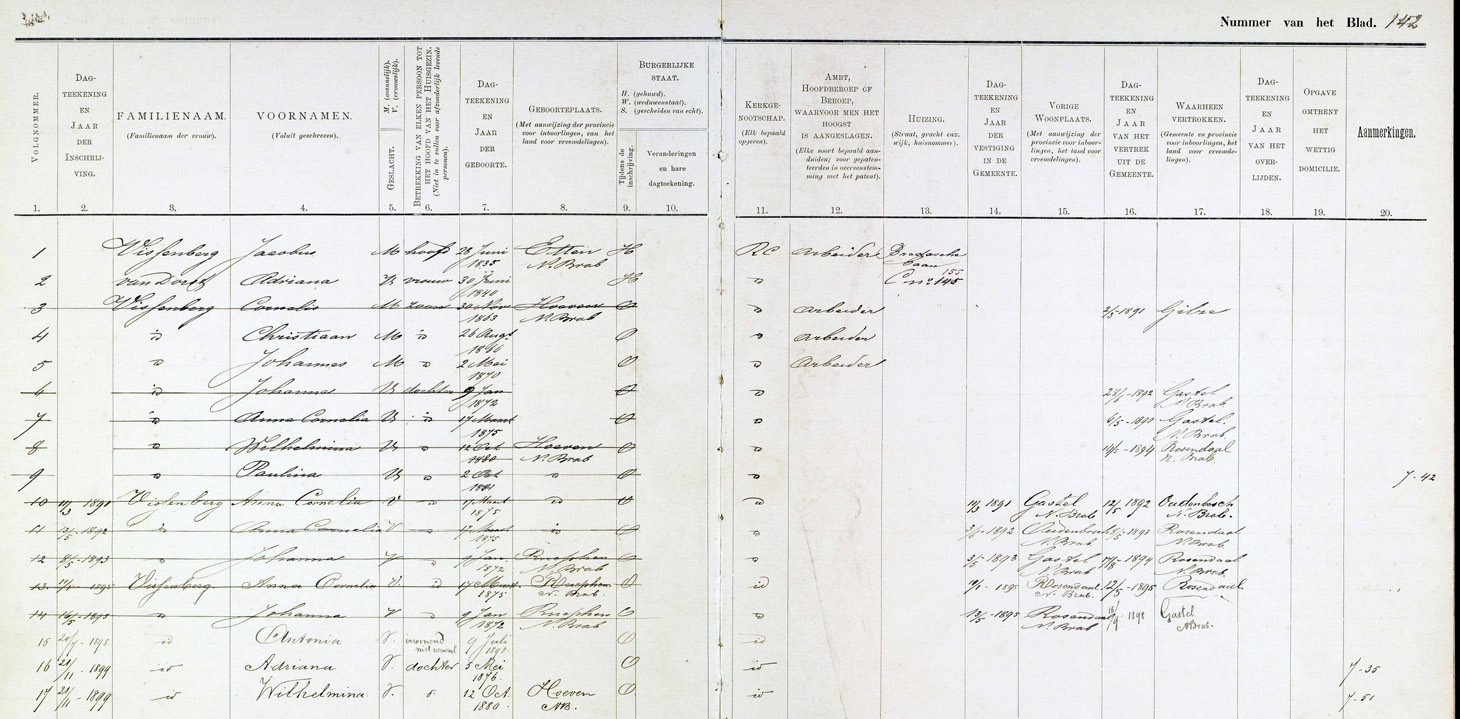 Nummer van het Blad. 142
VOLGNOMMER.
DAG-
TEEKENING
EN
JAAR
DER
INSCHRIJ-
VING.
FAMILIENAAM.
(Familienaam der vrouw).
VOORNAMEN.
(Voluit geschreven).
GESLACHT.
M. (mannelijk).
V. (vrouwelijk).
BETREKKING VAN ELKEN PERSOON TOT
HET HOOFD VAN HET HUISGEZIN.
(Niet in te vullen voor afzonderlijk levende
personen).
DAG-
TEEKENING
EN
JAAR
DER
GEBOORTE.
GEBOORTEPLAATS.
(Met aanwijzing der provincie
voor inboorlingen, van het
land voor vreemdelingen).
BURGERLIJKE
STAAT.
H. (gehuwd).
W. (weduwenstaat).
S. (gescheiden van echt).
Tijdens de
inschrijving.
Veranderingen
en hare
dagteekening.
KERKGE-
NOOTSCHAP.
(Elk bepaald
opgeven).
AMBT,
HOOFDBEROEP OF
BEROEP,
WAARVOOR MEN HET
HOOGST
IS AANGESLAGEN.
(Elke soort bepaald aan-
duiden; voor gepaten-
teerden in overeenstem-
ming met het patent).
HUIZING.
(Straat, gracht enz.
wijk, huisnommer).
DAG-
TEEKENING
EN
JAAR
DER
VESTIGING
IN DE
GEMEENTE.
VORIGE
WOONPLAATS.
(Met aanwijzing der
provincie voor inboor-
lingen, het land voor
vreemdelingen).
DAG-
TEEKENING
EN
JAAR
VAN HET
VERTREK
UIT DE
GEMEENTE.
WAARHEEN
VERTROKKEN.
(Gemeente en provincie
voor inboorlingen, het
land voor vreemde-
lingen).
DAG-
TEEKENING
EN
JAAR
VAN HET
OVER-
LIJDEN.
OPGAVE
OMTRENT
HET
WETTIG
DOMICILIE.
Aanmerkingen.
1. 2. 3. 4. 5. 6. 7. 8. 9. 10. 11. 12. 13. 14. 15. 16. 17. 18. 19. 20.
1 Vissenberg Jacobus M hoofd 28 Juni 1835 Etten N. Brab H RC Arbeider Bredasche Laan
2 van Dorst Adriana V vrouw 30 Juni 1840 H C no 145 155
3 Vissenberg Cornelis M zoon 30 Nov 1863 Hoeven N. Brab O Arbeider 2/5 1891 Gilze
4 Christiaan M 26 Augt 1866 O Arbeider
5 Johannes M 2 Mei 1870 O Arbeider
6 Johanna V dochter 9 Jan 1872 O 1892 Gastel N. Brab
7 Anna Cornelia V 17 Maart 1875 O 1890 Gastel N. Brab
8 Wilhelmina V 12 Oct 1880 Hoeven N. Brab O 1894 Rosendaal N. Brab.
9 Paulina V 2 Oct 1881 O 7-42
10 1891 Vissenberg Anna Cornelia V 17 Maart 1875 O 1891 Gastel N. Brab 1892 Oudenbosch N. Brab.
11 1892 Anna Cornelia V 17 Maart 1875 O 1892 Oudenbosch N. Brab 1893 Rosendaal N. Brab
12 1893 Johanna V 9 Jan 1872 Rucphen N. Brab O 1893 Gastel N. Brab 1894 Rosendaal N. Brab.
13 1895 Vissenberg Anna Cornelia V 17 Maart 1875 Rucphen N. Brab. O id 1895 Rosendaal N. Brab. 12/5 1895 Rosendaal
14 1895 Johanna V 9 Jan 1872 Rucphen N. Brab O 1895 Rosendaal N. Brab 1898 Gastel N Brab.
15 1898 id Antonia V. inwonend niet verwant 9 Juli O id
16 21/11 1899 id Adriana V. dochter 5 Mei 1876. O id 7-35
17 21/11 1899 id Wilhelmina V. 12 Oct. 1880 Hoeven NB. O id 7-51